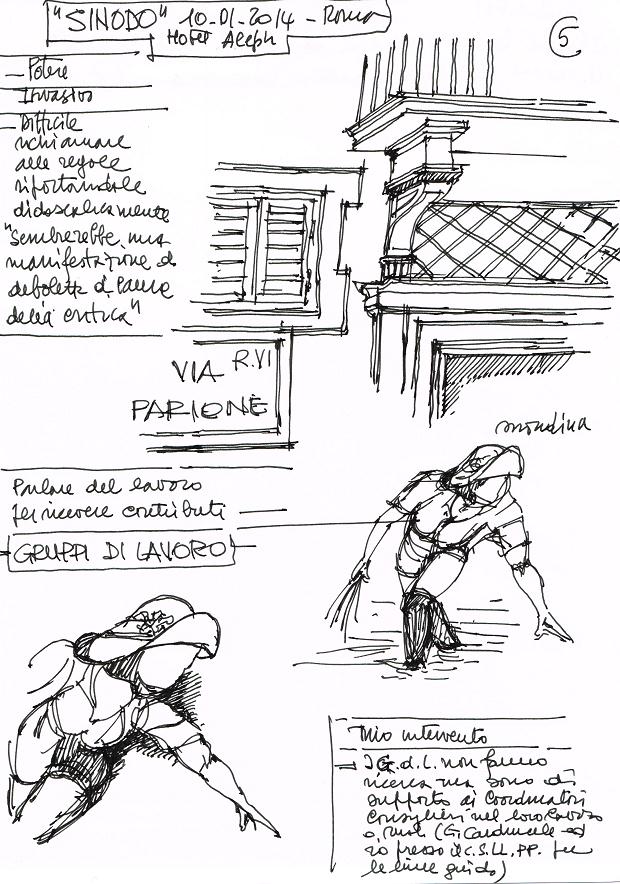 "SINODO" 10-01-2014 - Roma
Hotel Aleph
5
- Potere
Invasivo
- Difficile
richiamare
alle regole
riportandole
didascalicamente
"sembrerebbe una
manifestazione di
debolezza d. paura
della critica"
VIA R.VI
PARIONE
mondina
Parlare del lavoro
per ricevere contributi
GRUPPI DI LAVORO
Mio intervento
I G.d.L. non fanno
ricerca ma sono di
supporto ai Coordinatori
Consiglieri nel loro lavoro
(G. Cardinale ed
io presso il C.S.LL.PP. per
le linee guida)